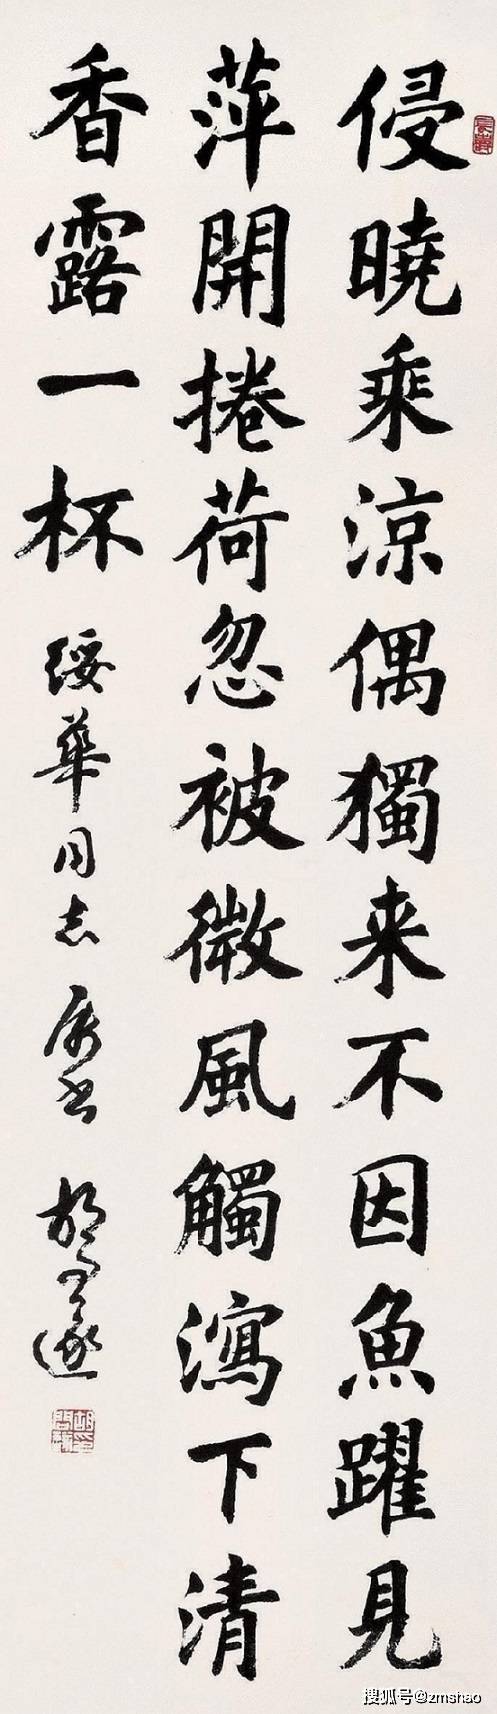 侵曉乘涼偶獨来不因魚躍見
萍開捲荷忽被微風觸瀉下清
香露一杯
綏華同志属書 胡問遂
搜狐号@zmshao